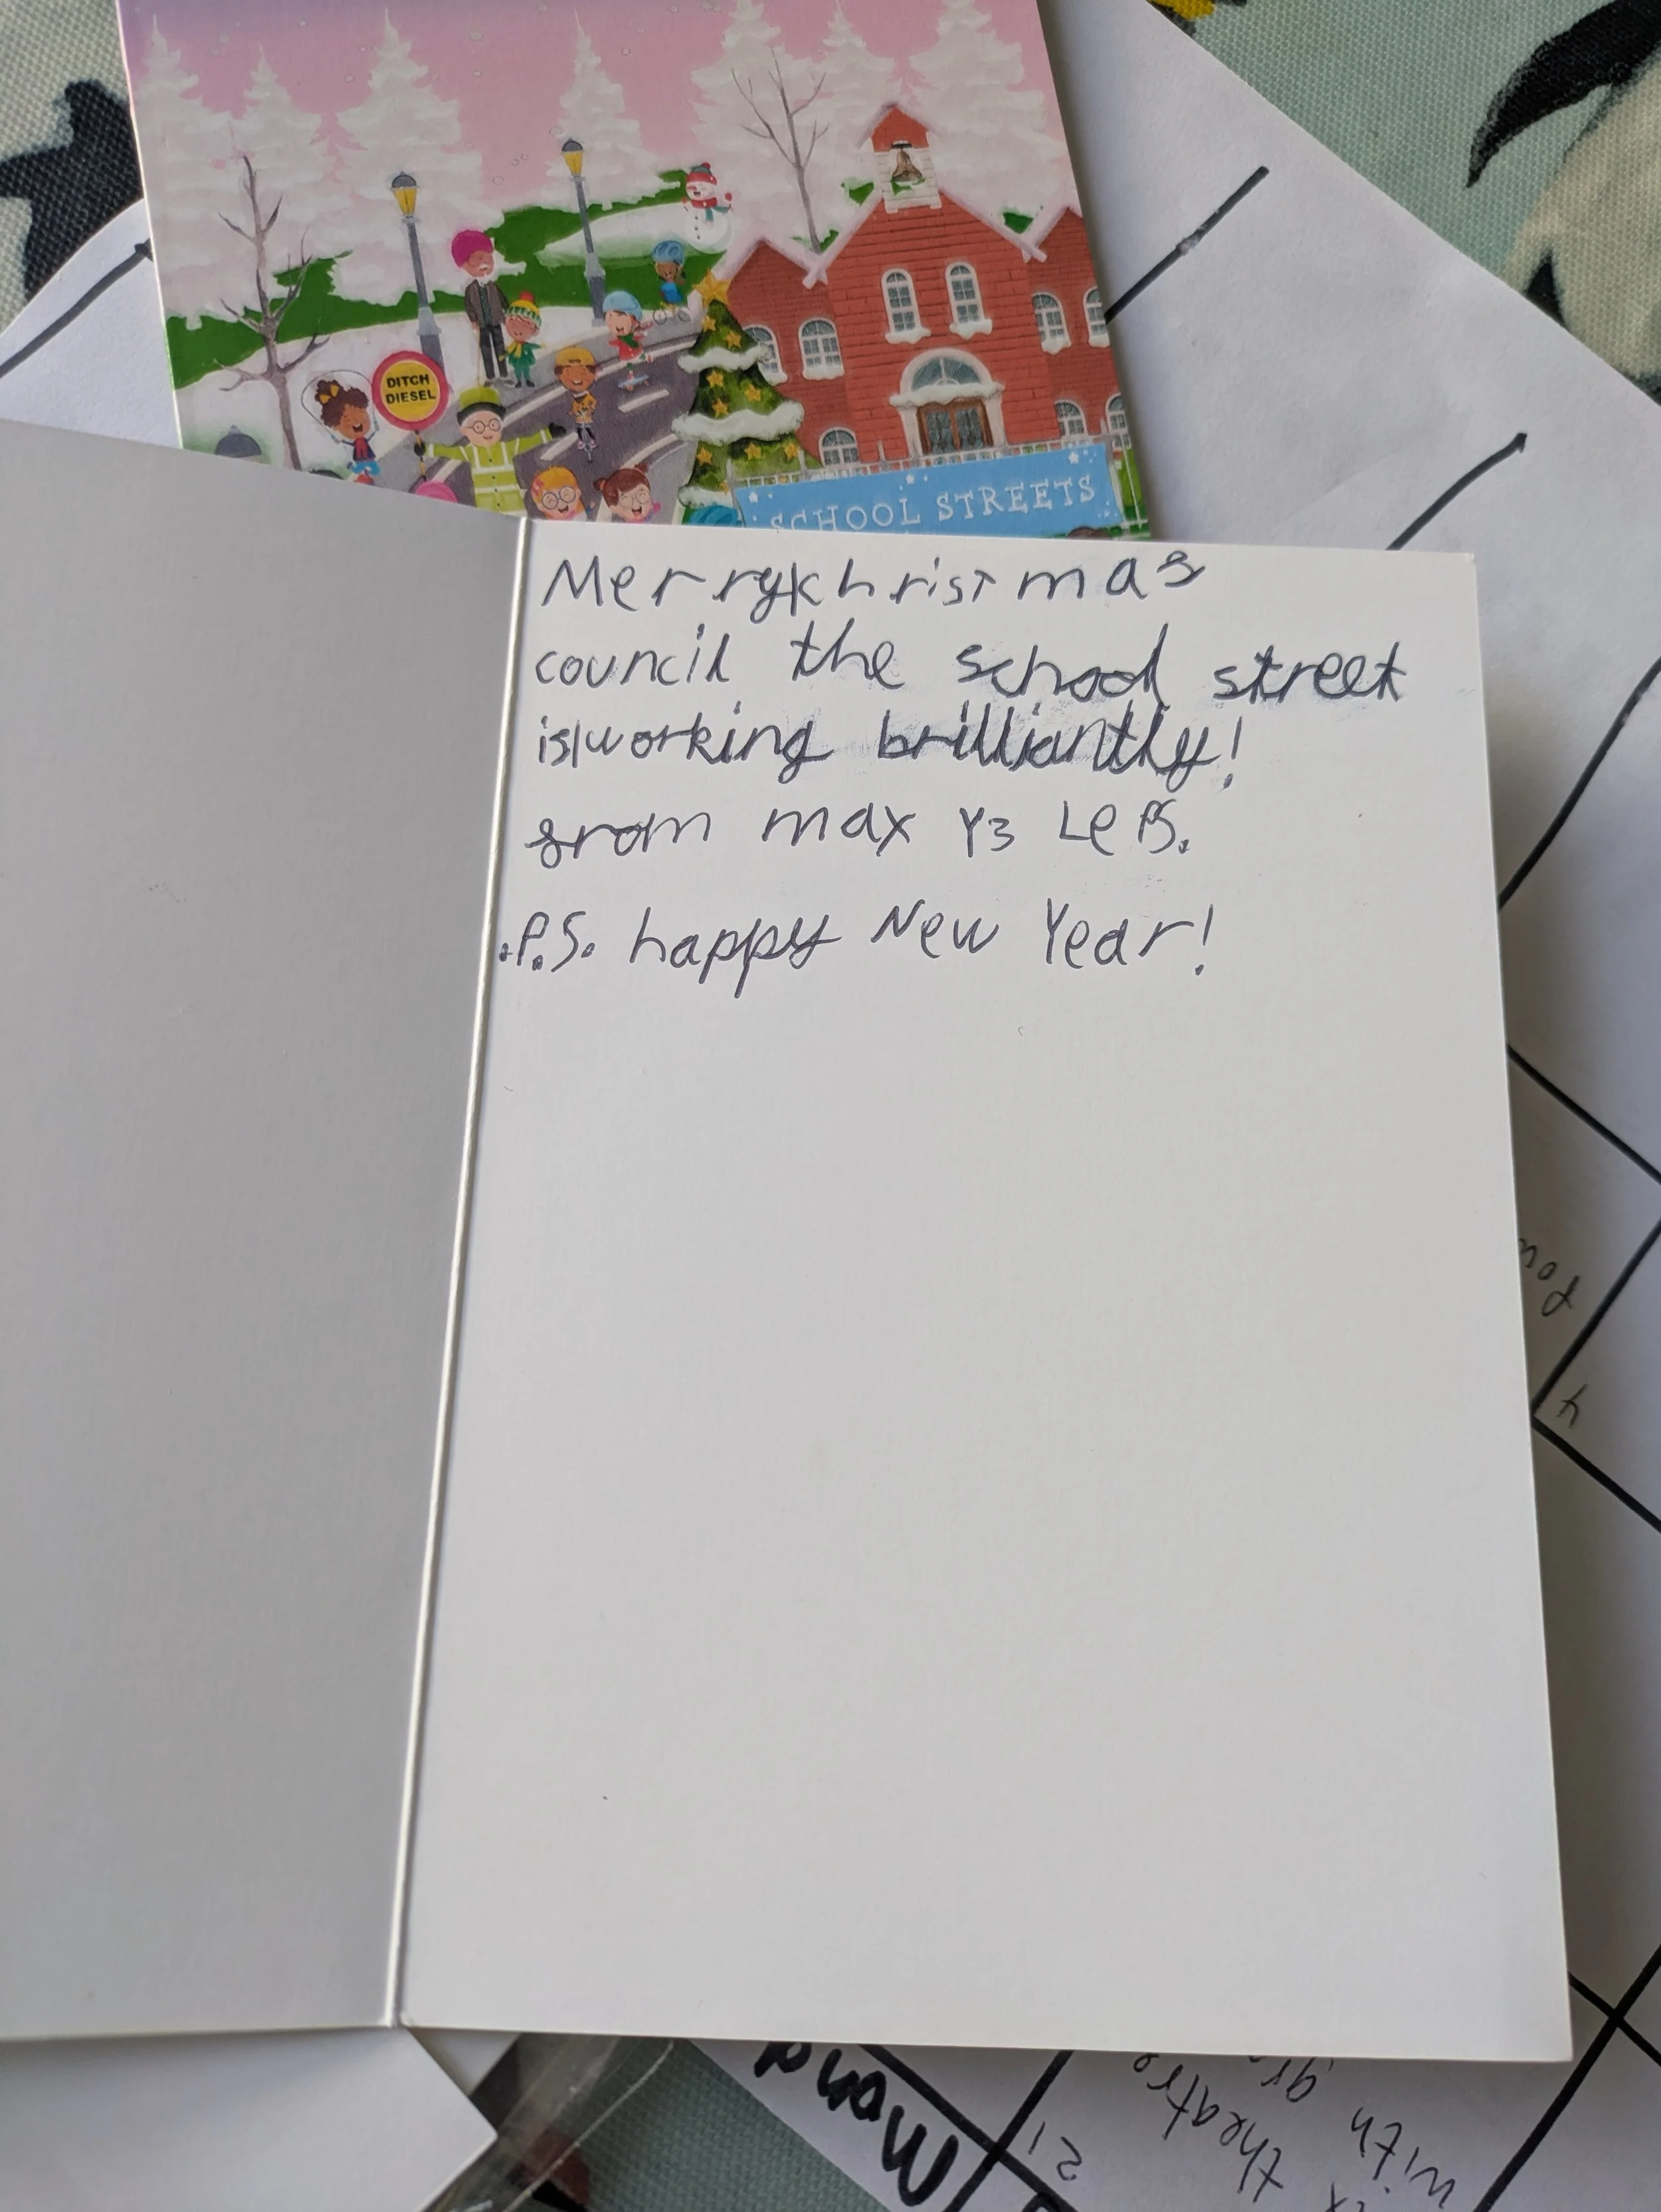 DITCH
DIESEL
SCHOOL STREETS
Merry christmas
council the school street
is working brilliantly!
from max Y3 LePS.
P.S. happy New Year!
21
theatre
with
gr